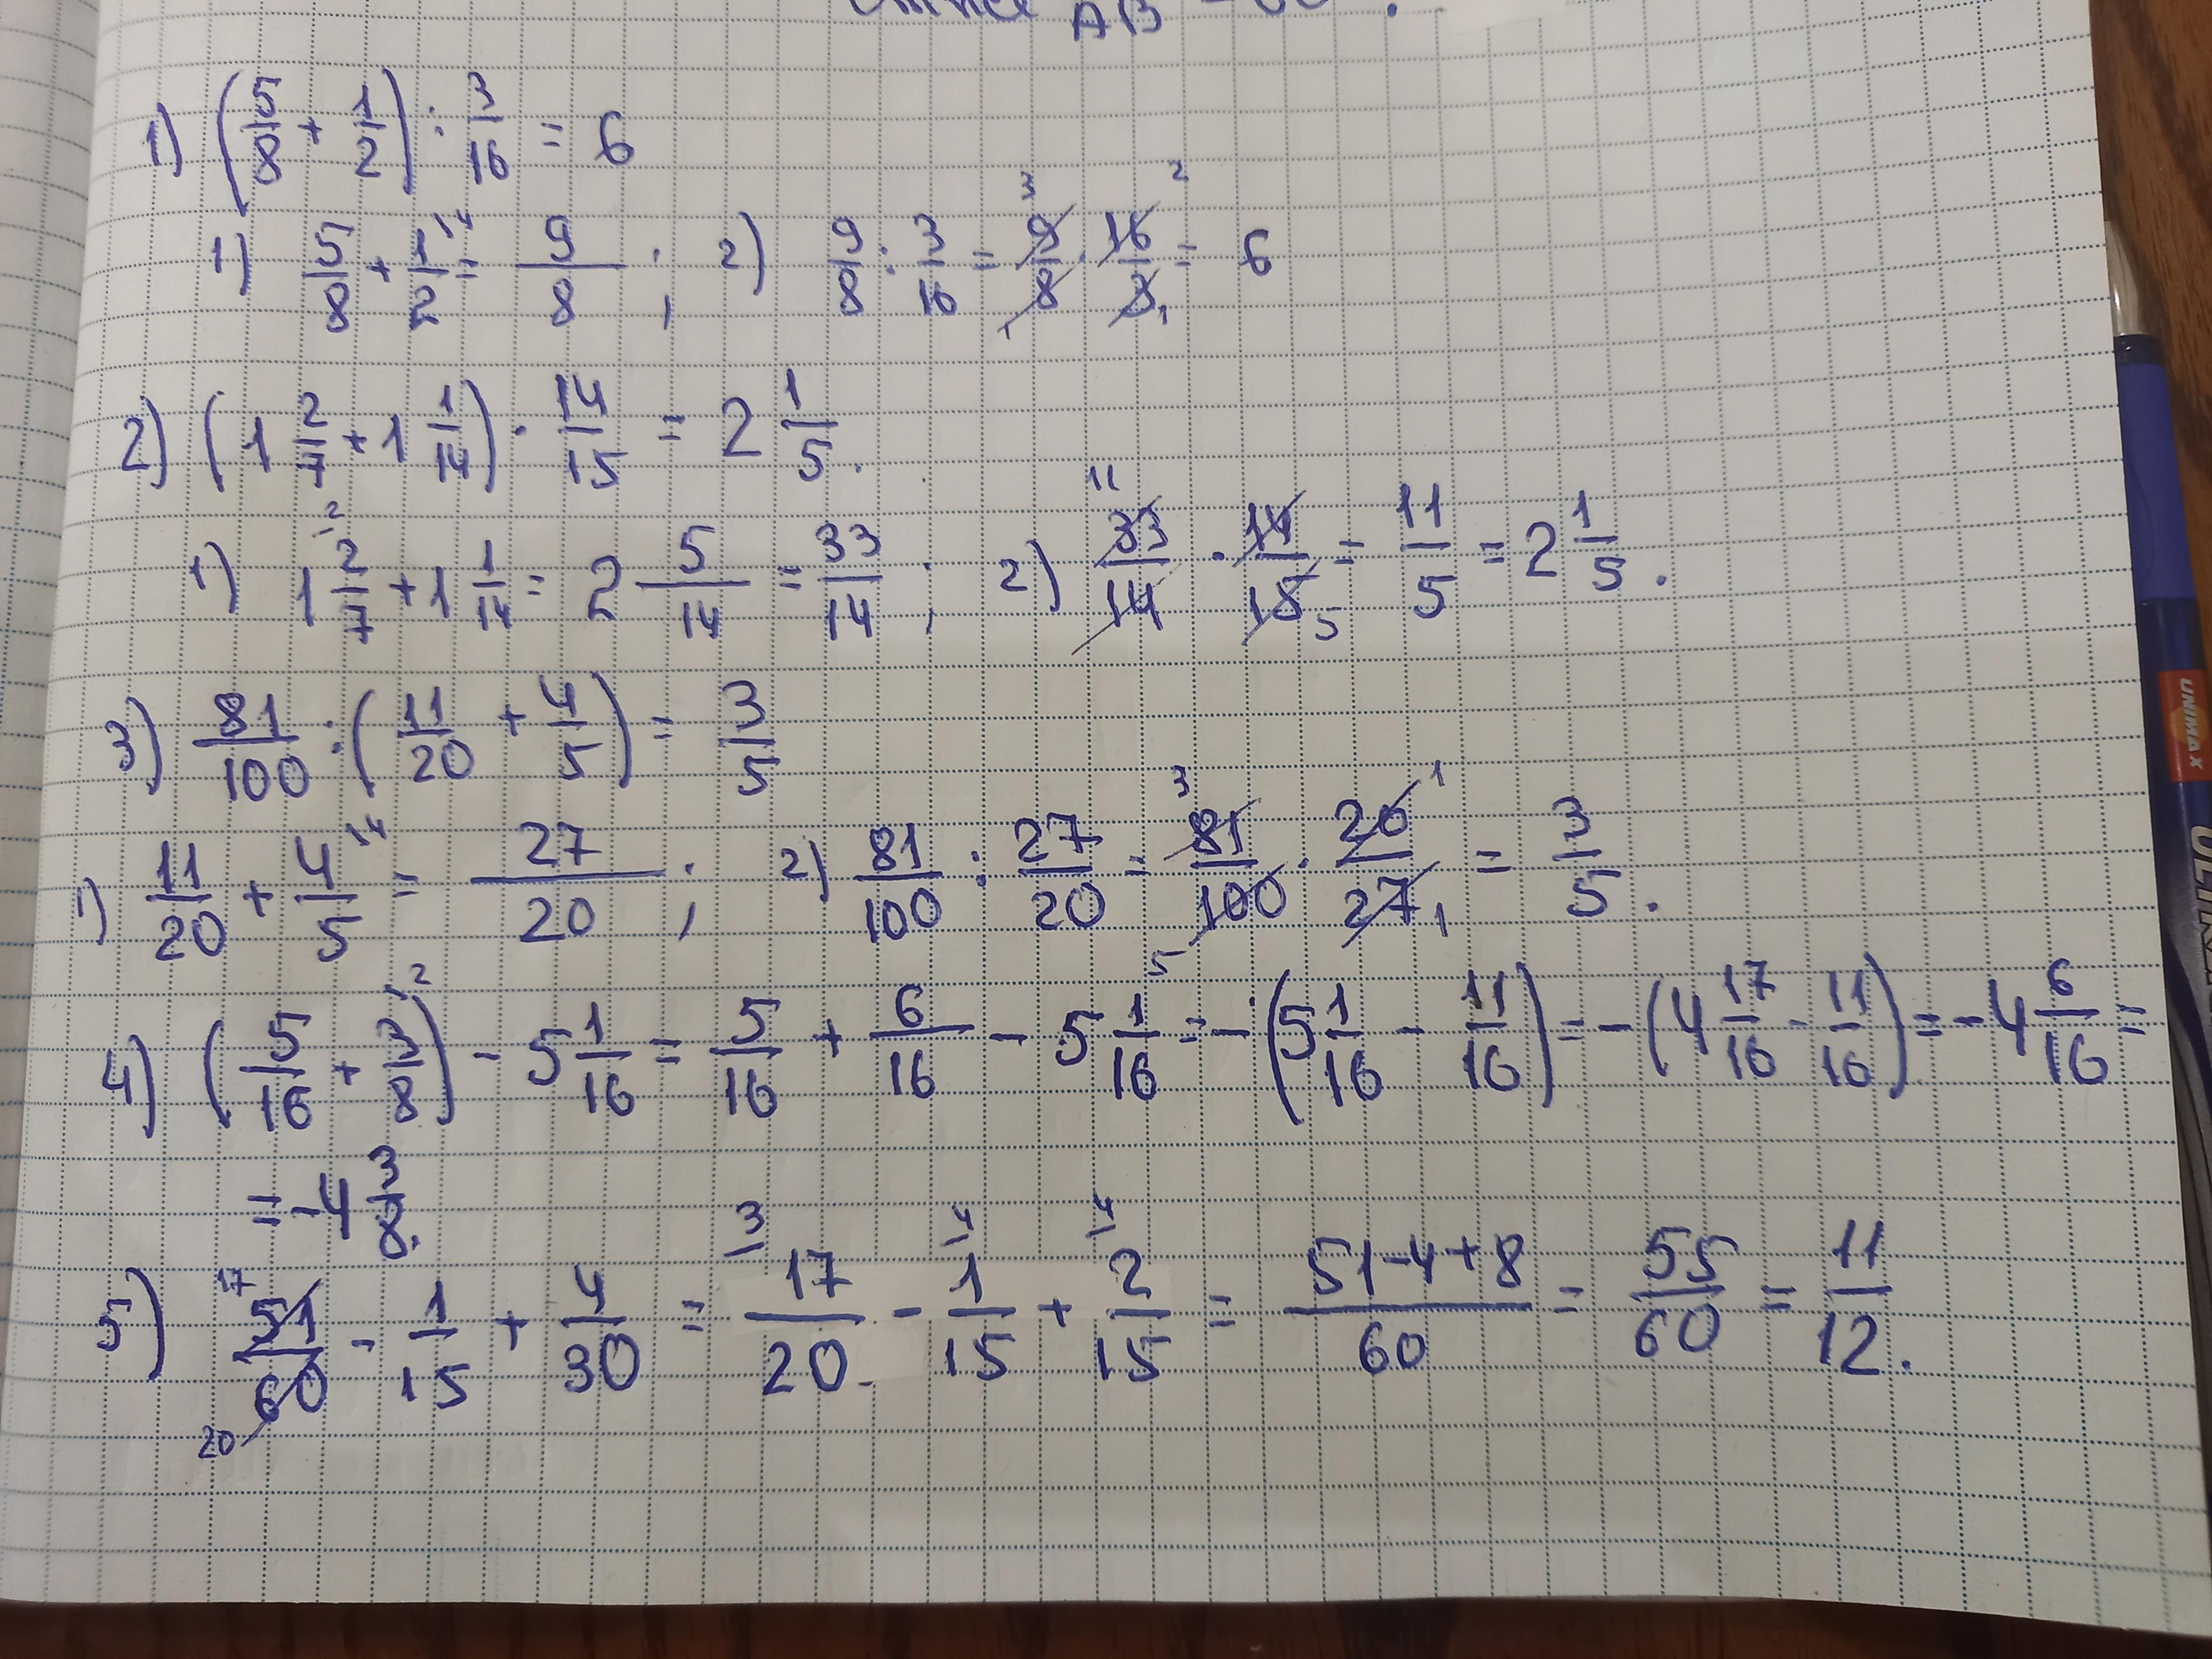 AB
1) (5/8 + 1/2) : 3/16 = 6
1) 5/8 + 1/2 \4 = 9/8 ; 2) 9/8 : 3/16 = 9/8 3 1 · 16/3 2 1 = 6
2) (1 2/7 + 1 1/14) · 14/15 = 2 1/5.
1) 1 2/7 \2 + 1 1/14 = 2 5/14 = 33/14 ; 2) 33/14 11 · 14/15 5 = 11/5 = 2 1/5.
3) 81/100 : (11/20 + 4/5) = 3/5
1) 11/20 + 4/5 \4 = 27/20 ; 2) 81/100 : 27/20 = 81/100 3 5 · 20/27 1 1 = 3/5.
4) (5/16 + 3/8 \2) - 5 1/16 = 5/16 + 6/16 - 5 1/16 = -(5 1/16 - 11/16) = -(4 17/16 - 11/16) = -4 6/16 =
= -4 3/8.
5) 51/60 17 20 - 1/15 + 4/30 = 17/20 \3 - 1/15 \4 + 2/15 \4 = 51-4+8/60 = 55/60 = 11/12.
UNIMAX